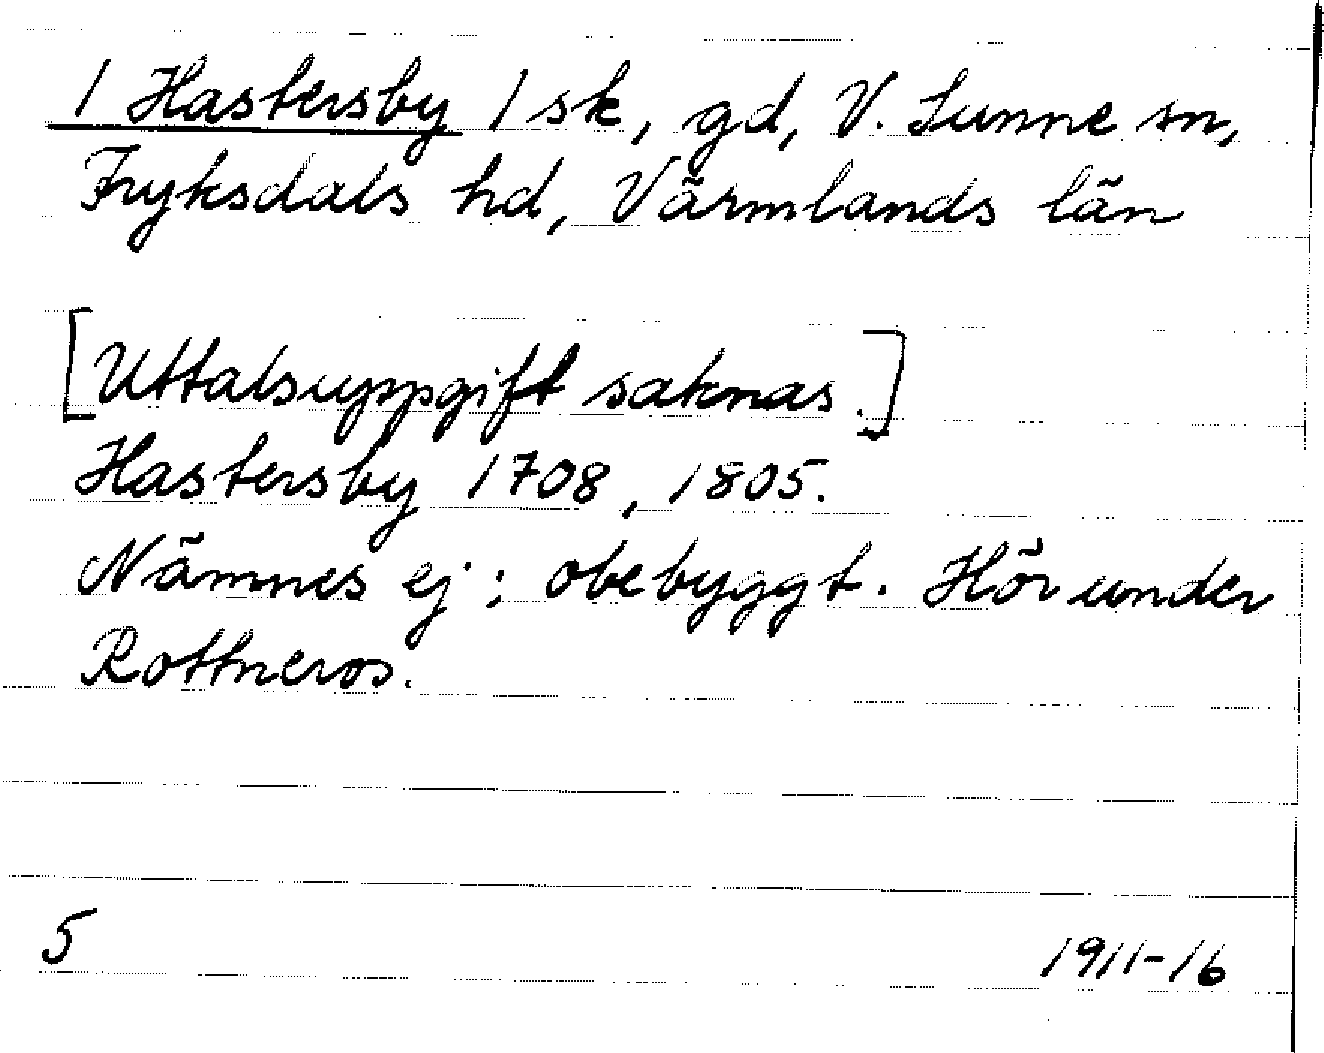 1 Hastersby 1 sk, gd, V. Sunne sn,
Fryksdals hd, Värmlands län
[Uttalsuppgift saknas.]
Hastersby 1708, 1805.
Nämnes ej; obebyggt. Hör under
Rottneros.
5
1911-16